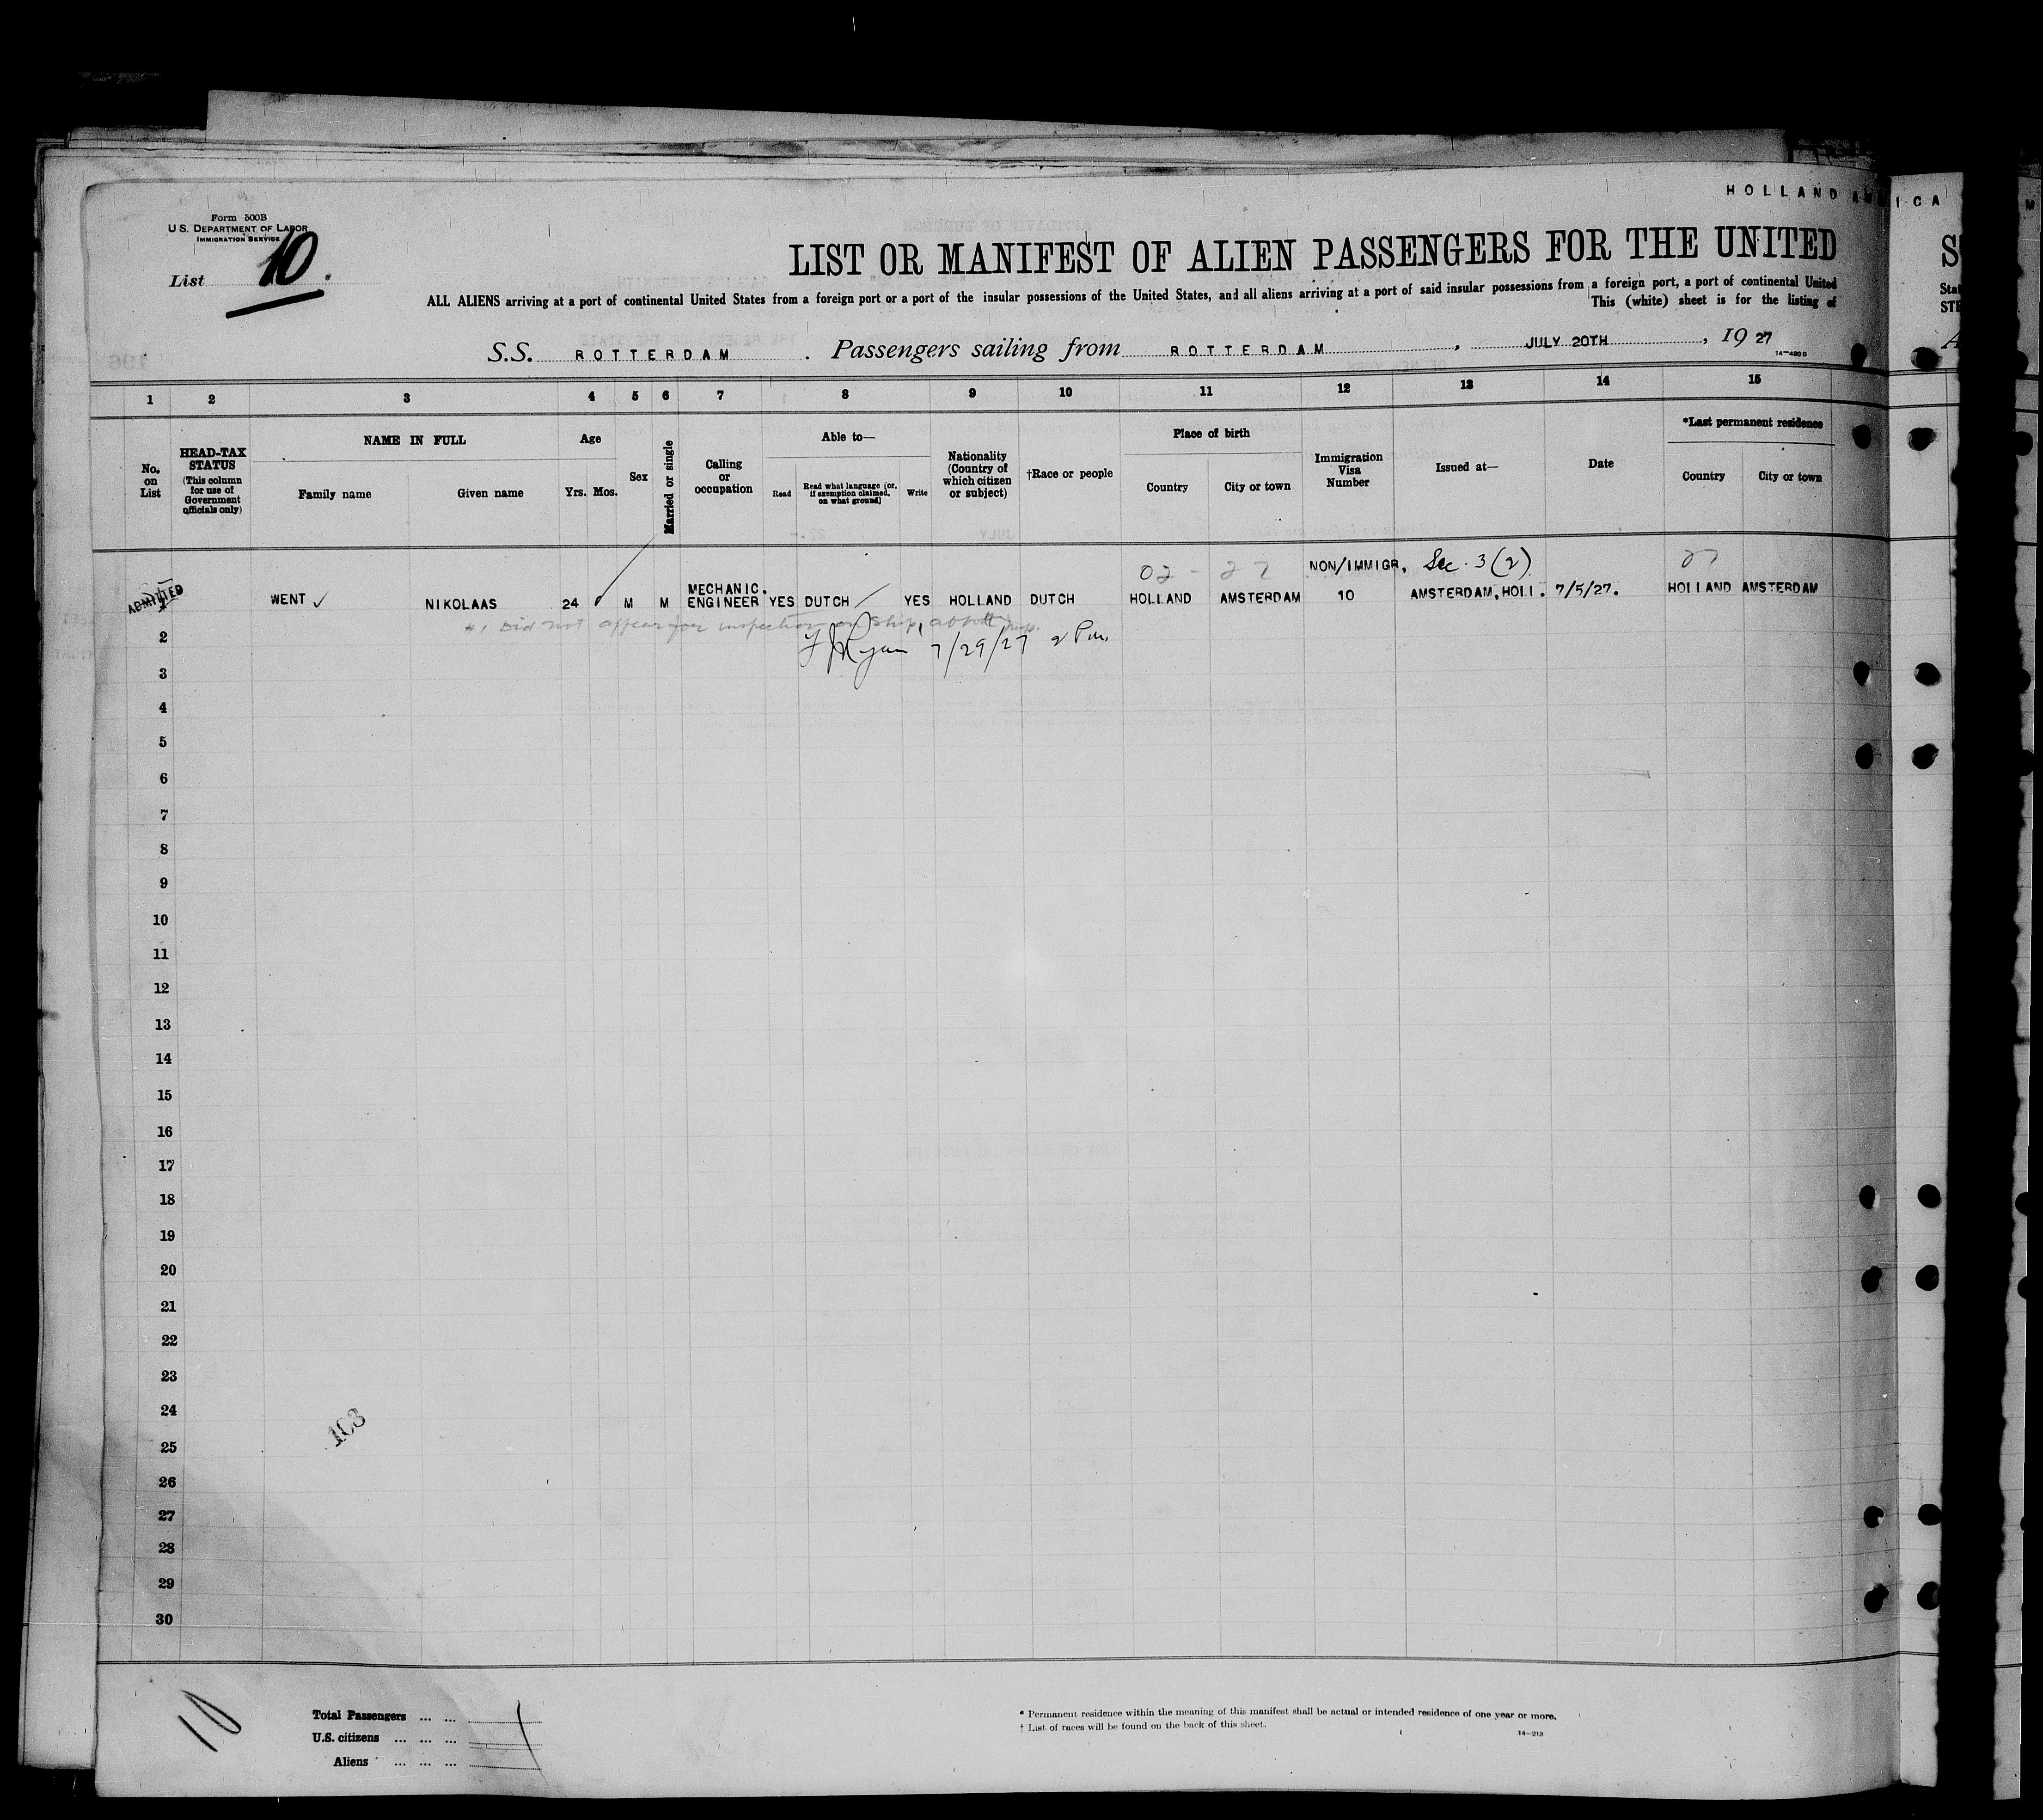 HOLLAND AMERICA
Form 500B
U.S. DEPARTMENT OF LABOR
IMMIGRATION SERVICE
List 10.
LIST OR MANIFEST OF ALIEN PASSENGERS FOR THE UNITED
ALL ALIENS arriving at a port of continental United States from a foreign port or a port of the insular possessions of the United States, and all aliens arriving at a port of said insular possessions from a foreign port, a port of continental United
This (white) sheet is for the listing of
S.S. ROTTERDAM. Passengers sailing from ROTTERDAM, JULY 20TH, 19 27
14—430 B
1 2 3 4 5 6 7 8 9 10 11 12 13 14 15
No. on List
HEAD-TAX STATUS (This column for use of Government officials only)
NAME IN FULL
Family name Given name
Age
Yrs. Mos.
Sex
Married or single
Calling or occupation
Able to—
Read Read what language (or, if exemption claimed, on what ground) Write
Nationality (Country of which citizen or subject)
†Race or people
Place of birth
Country City or town
Immigration Visa Number
Issued at—
Date
*Last permanent residence
Country City or town
02 - 27 NON/IMMIGR, Sec. 3(2) 27
ADMITTED 1 WENT ✓ NIKOLAAS 24 M M MECHANIC. ENGINEER YES DUTCH YES HOLLAND DUTCH HOLLAND AMSTERDAM 10 AMSTERDAM, HOLL. 7/5/27. HOLLAND AMSTERDAM
#1 Did not appear for inspection on ship,
2 F J Ryan 7/29/27 2 Pm.
3
4
5
6
7
8
9
10
11
12
13
14
15
16
17
18
19
20
21
22
23
24
103
25
26
27
28
29
30
10
Total Passengers ... ...
U.S. citizens ... ... ...
Aliens ... ... ...
* Permanent residence within the meaning of this manifest shall be actual or intended residence of one year or more.
† List of races will be found on the back of this sheet.
14—213